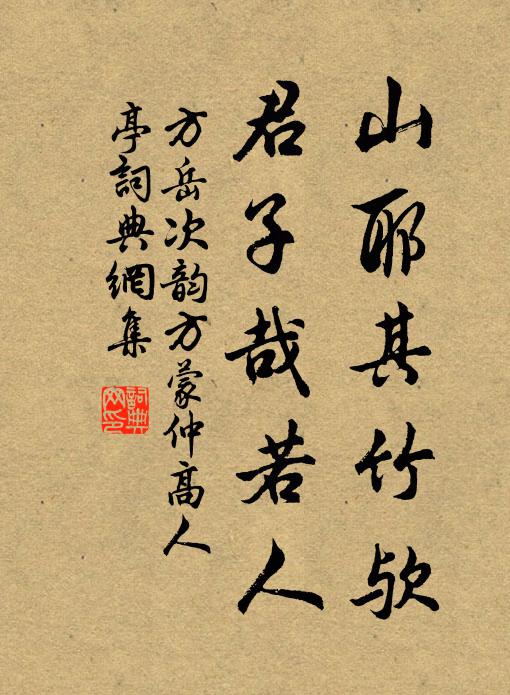 山耶其竹欤
君子哉若人
方岳次韵方蒙仲高人
亭詞典網集
詞典网印